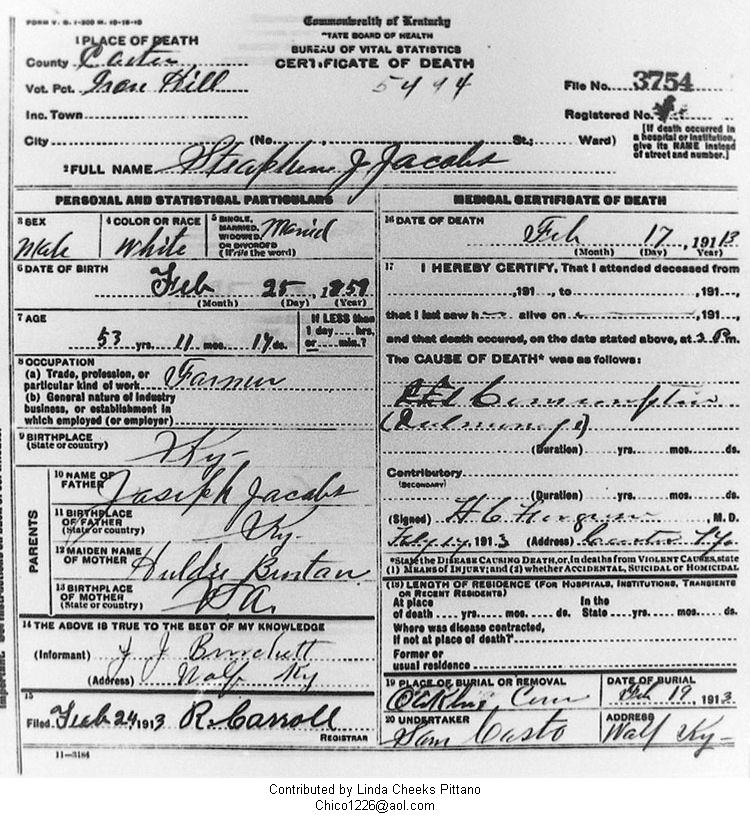 FORM V. S. 1-200 M. 10-18-10
Commonwealth of Kentucky
STATE BOARD OF HEALTH
BUREAU OF VITAL STATISTICS
CERTIFICATE OF DEATH
1 PLACE OF DEATH
County Carter
Vot. Pct. Iron Hill
5494
File No. 3754
Inc. Town
Registered No.
City (No. , St.; Ward)
[If death occurred in a hospital or institution, give its NAME instead of street and number.]
2 FULL NAME Steaphen J Jacobs
PERSONAL AND STATISTICAL PARTICULARS
3 SEX
Male
4 COLOR OR RACE
White
5 SINGLE, MARRIED, WIDOWED, OR DIVORCED (Write the word)
Married
6 DATE OF BIRTH
Feb 25, 1859
(Month) (Day) (Year)
7 AGE
53 yrs. 11 mos. 17 ds.
If LESS than 1 day hrs. or min.?
8 OCCUPATION
(a) Trade, profession, or particular kind of work Farmer
(b) General nature of industry business, or establishment in which employed (or employer)
9 BIRTHPLACE
(State or country)
Ky-
PARENTS
10 NAME OF FATHER
Jasiph Jacobs
11 BIRTHPLACE OF FATHER (State or country)
Ky-
12 MAIDEN NAME OF MOTHER
Huldie
13 BIRTHPLACE OF MOTHER (State or country)
Va.
14 THE ABOVE IS TRUE TO THE BEST OF MY KNOWLEDGE
(Informant) J J Burchett
(Address) Wolf Ky
15
Filed Feb 24 1913 R. Carroll
REGISTRAR
11-3184
MEDICAL CERTIFICATE OF DEATH
16 DATE OF DEATH
Feb 17, 1913
(Month) (Day) (Year)
17 I HEREBY CERTIFY, That I attended deceased from
,191 , to ,191 ,
that I last saw h alive on ,191 ,
and that death occured, on the date stated above, at 3 P.m.
The CAUSE OF DEATH* was as follows:
Consumption
(Pulmonary)
(Duration) yrs. mos. ds.
Contributory
(SECONDARY)
(Duration) yrs. mos. ds.
(Signed) H C , M. D.
1913 (Address) Carter Ky.
*State the DISEASE CAUSING DEATH, or, in deaths from VIOLENT CAUSES, state
(1) MEANS OF INJURY; and (2) whether ACCIDENTAL, SUICIDAL or HOMICIDAL
(18) LENGTH OF RESIDENCE (FOR HOSPITALS, INSTITUTIONS, TRANSIENTS OR RECENT RESIDENTS)
At place of death yrs. mos. ds. In the State yrs. mos. ds.
Where was disease contracted,
If not at place of death?
Former or
usual residence
19 PLACE OF BURIAL OR REMOVAL
Cem
DATE OF BURIAL
Feb 19, 1913
20 UNDERTAKER
Sam Casto
ADDRESS
Wolf Ky-
Contributed by Linda Cheeks Pittano
Chico1226@aol.com